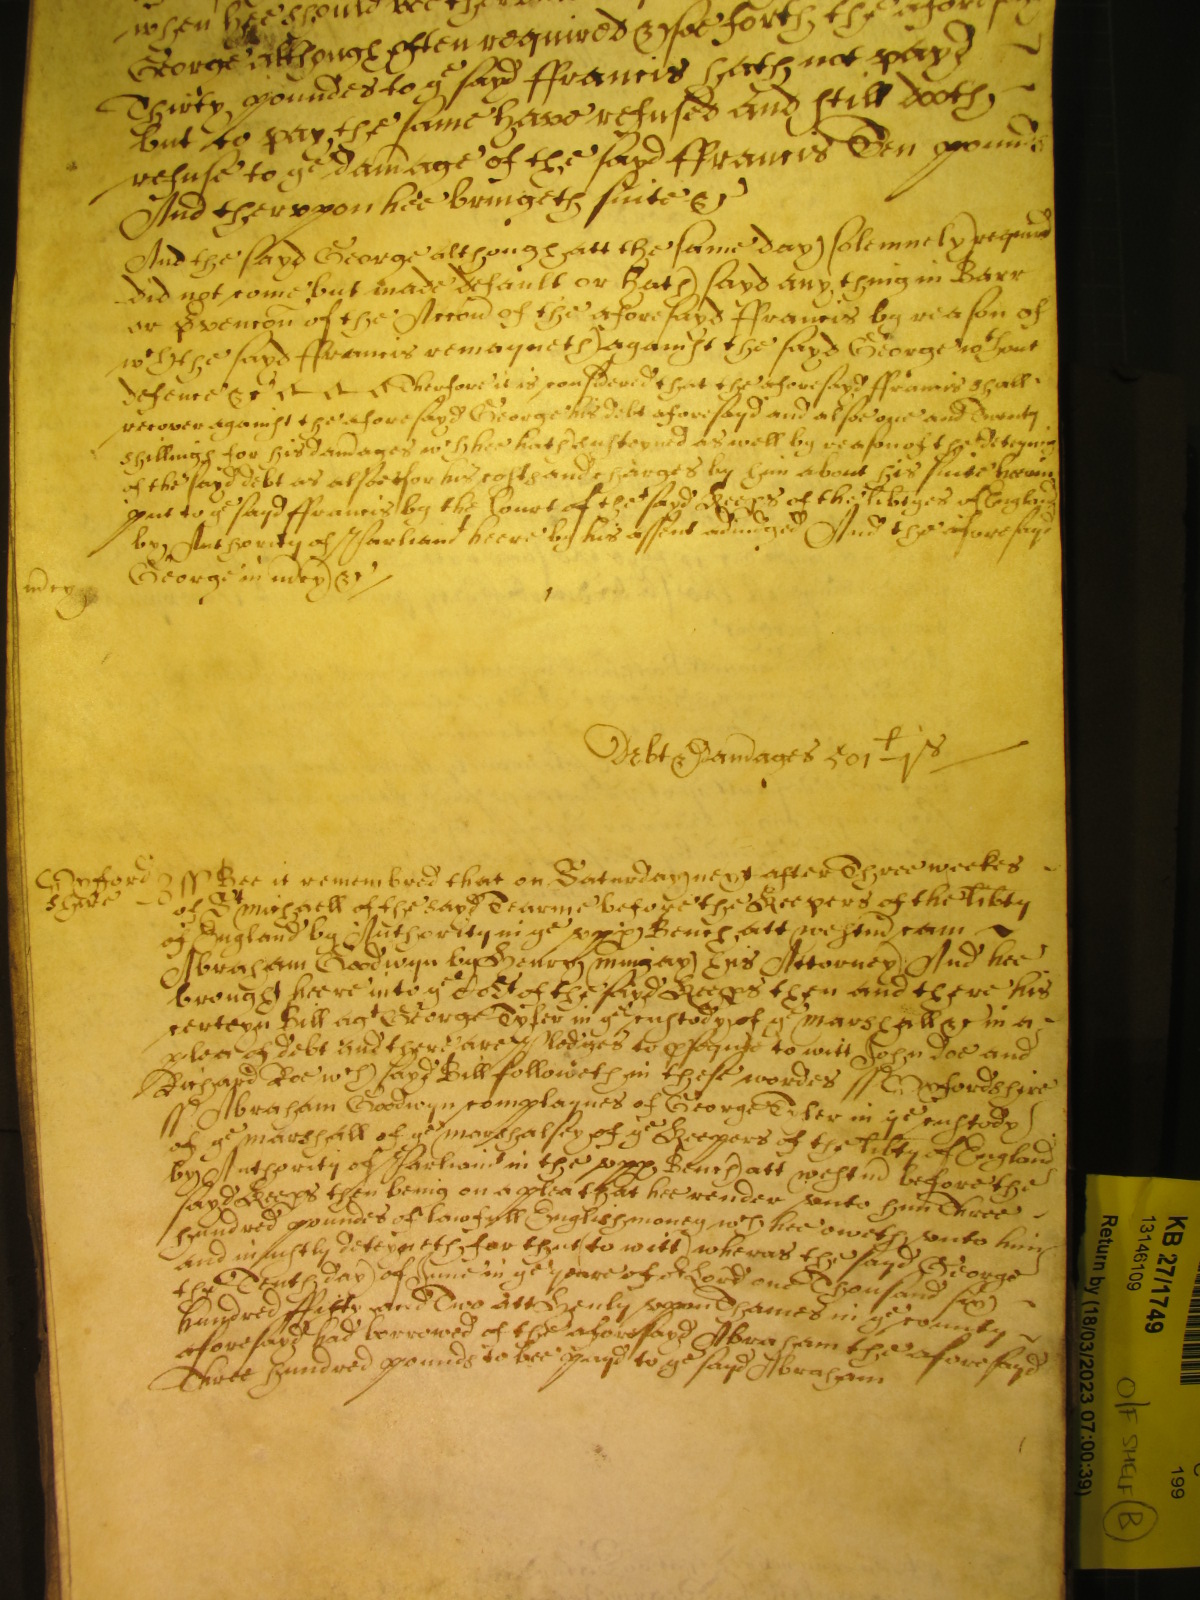 when hee should bee therunto
George although often required & soe forth the aforesayd
Thirty poundes to ye sayd ffrancis hath not payd
but to pay the same have refused and still doth
refuse to ye damage of the sayd ffrancis Ten pounds
And therupon hee bringeth suite &c
And the sayd George although att the same day solemnely required
did not come but made default or hath sayd any thing in Barr
or pvencon of the Accon of the aforesayd ffrancis by reason of
wch the sayd ffrancis remayneth against the sayd George wthout
defence &c Therfore it is considered that the aforesayd ffrancis shall
recover against the aforesayd George his debt aforesayd and alsoe one and Twenty
shillings for his damages wch hee hath susteyned as well by reason of the deteyning
of the sayd debt as alsoe for his costs and charges by him about his suite
put to ye sayd ffrancis by the Court of the sayd Keeps of the libtyes of England
by Authority of Parliamt heere by his assent adiudged And the aforesayd
George in mcy &c
mcy
Debt & Damages
Oxford
shire
ss Bee it remembred that on Saturday next after Three weekes
of St Michaell of the sayd Tearme before the Keepers of the libty
of England by Authority in ye upp Bench att Westmr came
Abraham Goodwyn by Henry Mingay his Attorney And hee
brought heere into ye Cort of the sayd Keeps then and there his
certeyn Bill agt George Tyler in ye custody of ye marshall &c in a
plea of debt and there are Pledges to psecute to witt John Doe and
Richard Roe wch sayd Bill followeth in these wordes ss Oxfordshire
ss Abraham Goodwyn complaynes of George Tyler in ye custody
of ye marshall of ye marshalsey of ye Keepers of the libty of England
by Authority of Parliamt in the upp Bench att Westmr before the
sayd Keeps then being on a plea that hee render unto him Three
hundred poundes of lawfull English money wch hee oweth unto him
and iniustly deteyneth for that to witt wheras the sayd George
the Tenth day of June in ye yeare of or Lord one Thousand six
hundred ffifty and Two att Henly upon Thames in ye county
aforesayd had borrowed of the aforesayd Abraham the aforesayd
Three hundred pounds to bee payd to ye sayd Abraham
KB 27/1749
13146109
199
Return by (18/03/2023 07:00:39)
O/F SHELF
B